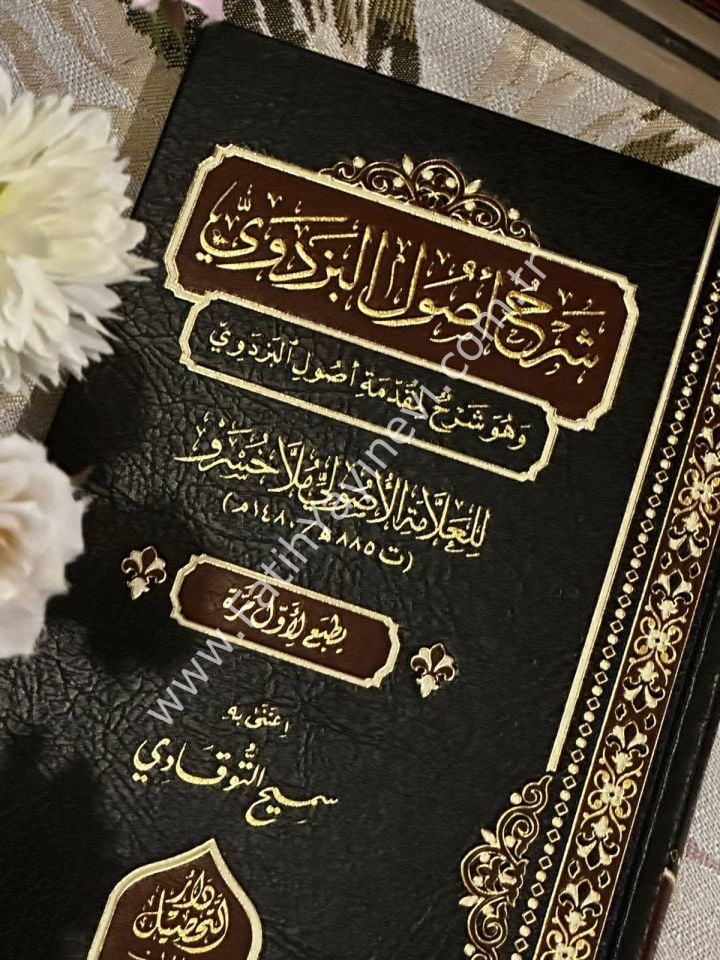 شرح أصول البزدوي
وهو شرح لمقدمة أصول البزدوي
للعلامة الأصولي ملا خسرو
(ت ٨٨٥ هـ ١٤٨٠ م)
يطبع لأول مرة
اعتنى به
سميح التوقادي
دار
التحصيل
www.FatihYayinevi.com.tr